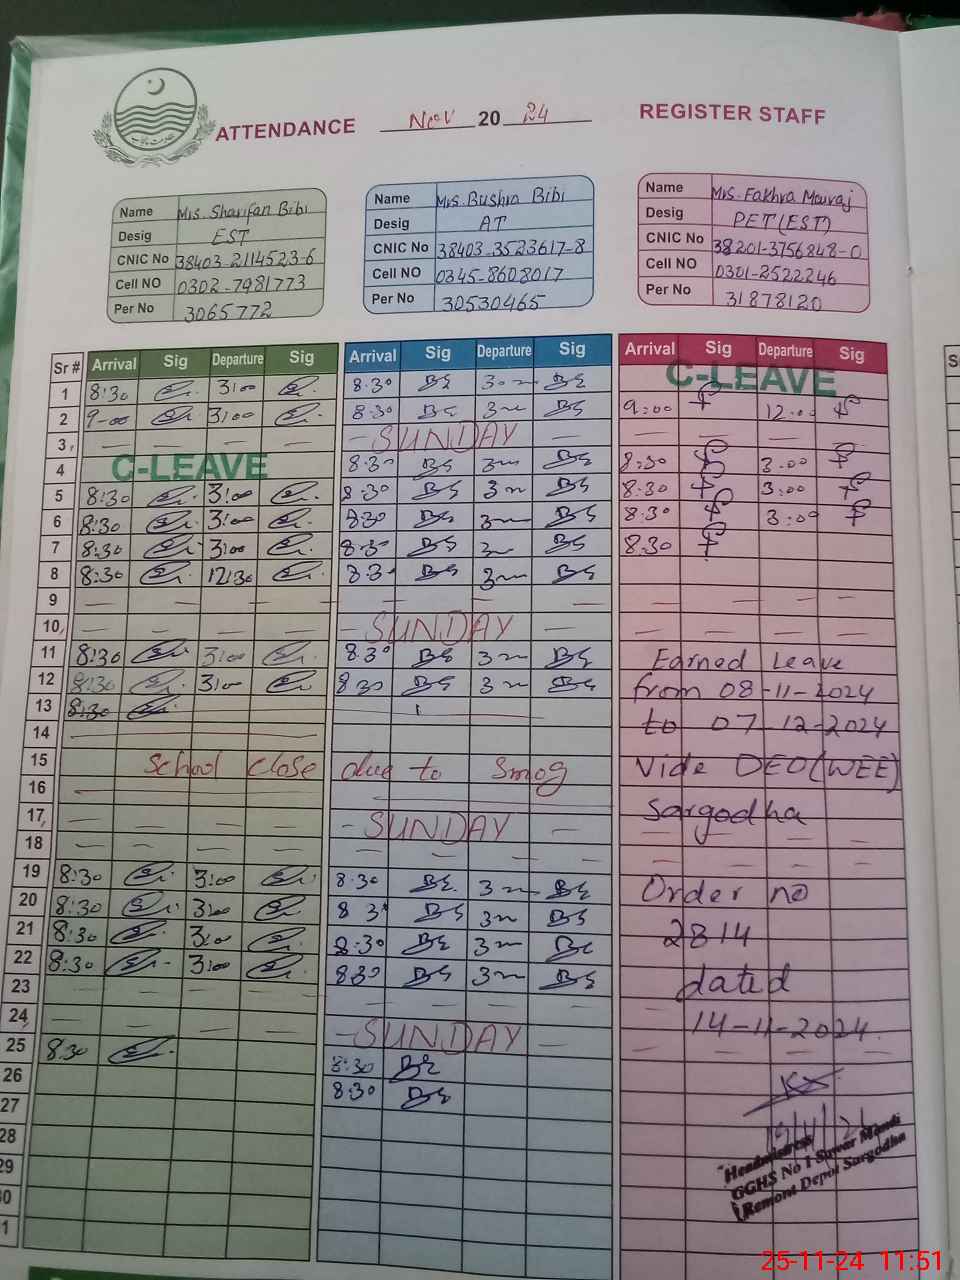 ATTENDANCE Nov 20 24 REGISTER STAFF
Name Mrs. Sharifan Bibi
Desig EST
CNIC No 38403-2114523-6
Cell NO 0302-7981773
Per No 3065772
Name Mrs. Bushra Bibi
Desig AT
CNIC No 38403-3523617-8
Cell NO 0345-8608017
Per No 30530465
Name Mrs. Fakhra Mauraj
Desig PET (EST)
CNIC No 38201-3756848-0
Cell NO 0301-2522246
Per No 31878120
Sr # Arrival Sig Departure Sig Arrival Sig Departure Sig Arrival Sig Departure Sig
1 8:30 3:00 8:30 C-LEAVE
2 9-00 3:00 8:30 9:00 12:00
3 SUNDAY
4 C-LEAVE 8:30 8:30 3:00
5 8:30 3:00 8:30 8:30 3:00
6 8:30 3:00 8:30 8:30 3:00
7 8:30 3:00 8:30 8:30
8 8:30 12:30 8:30
9
10 SUNDAY
11 8:30 3:00 8:30 Earned Leave
12 8:30 3:00 8:30 from 08-11-2024
13 8:30 to 07-12-2024
14
15 School close due to Smog Vide DEO(WEE)
16
17 SUNDAY Sargodha
18
19 8:30 3:00 8:30 Order no
20 8:30 3:00 8:30
21 8:30 3:00 8:30 2814
22 8:30 3:00 8:30 dated
23
24 SUNDAY 14-11-2024
25 8:30 8:30
26 8:30
27
28
29
30
31
Headmistress
GGHS No 1 Suwar Mandi
Remont Depot Sargodha
25-11-24 11:51